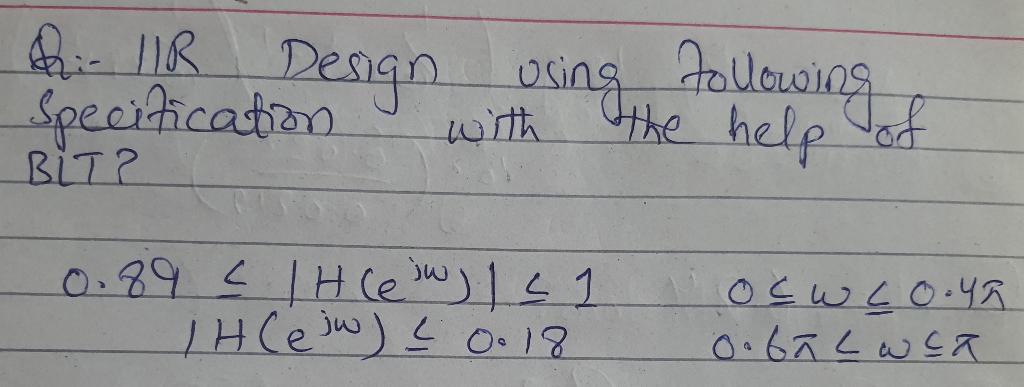 Q:- IIR Design using Following
Specification with the help of
BLT?
0.89 ≤ |H(e^jw)| ≤ 1 0 ≤ w ≤ 0.4π
|H(e^jw) ≤ 0.18 0.6π ≤ w ≤ π